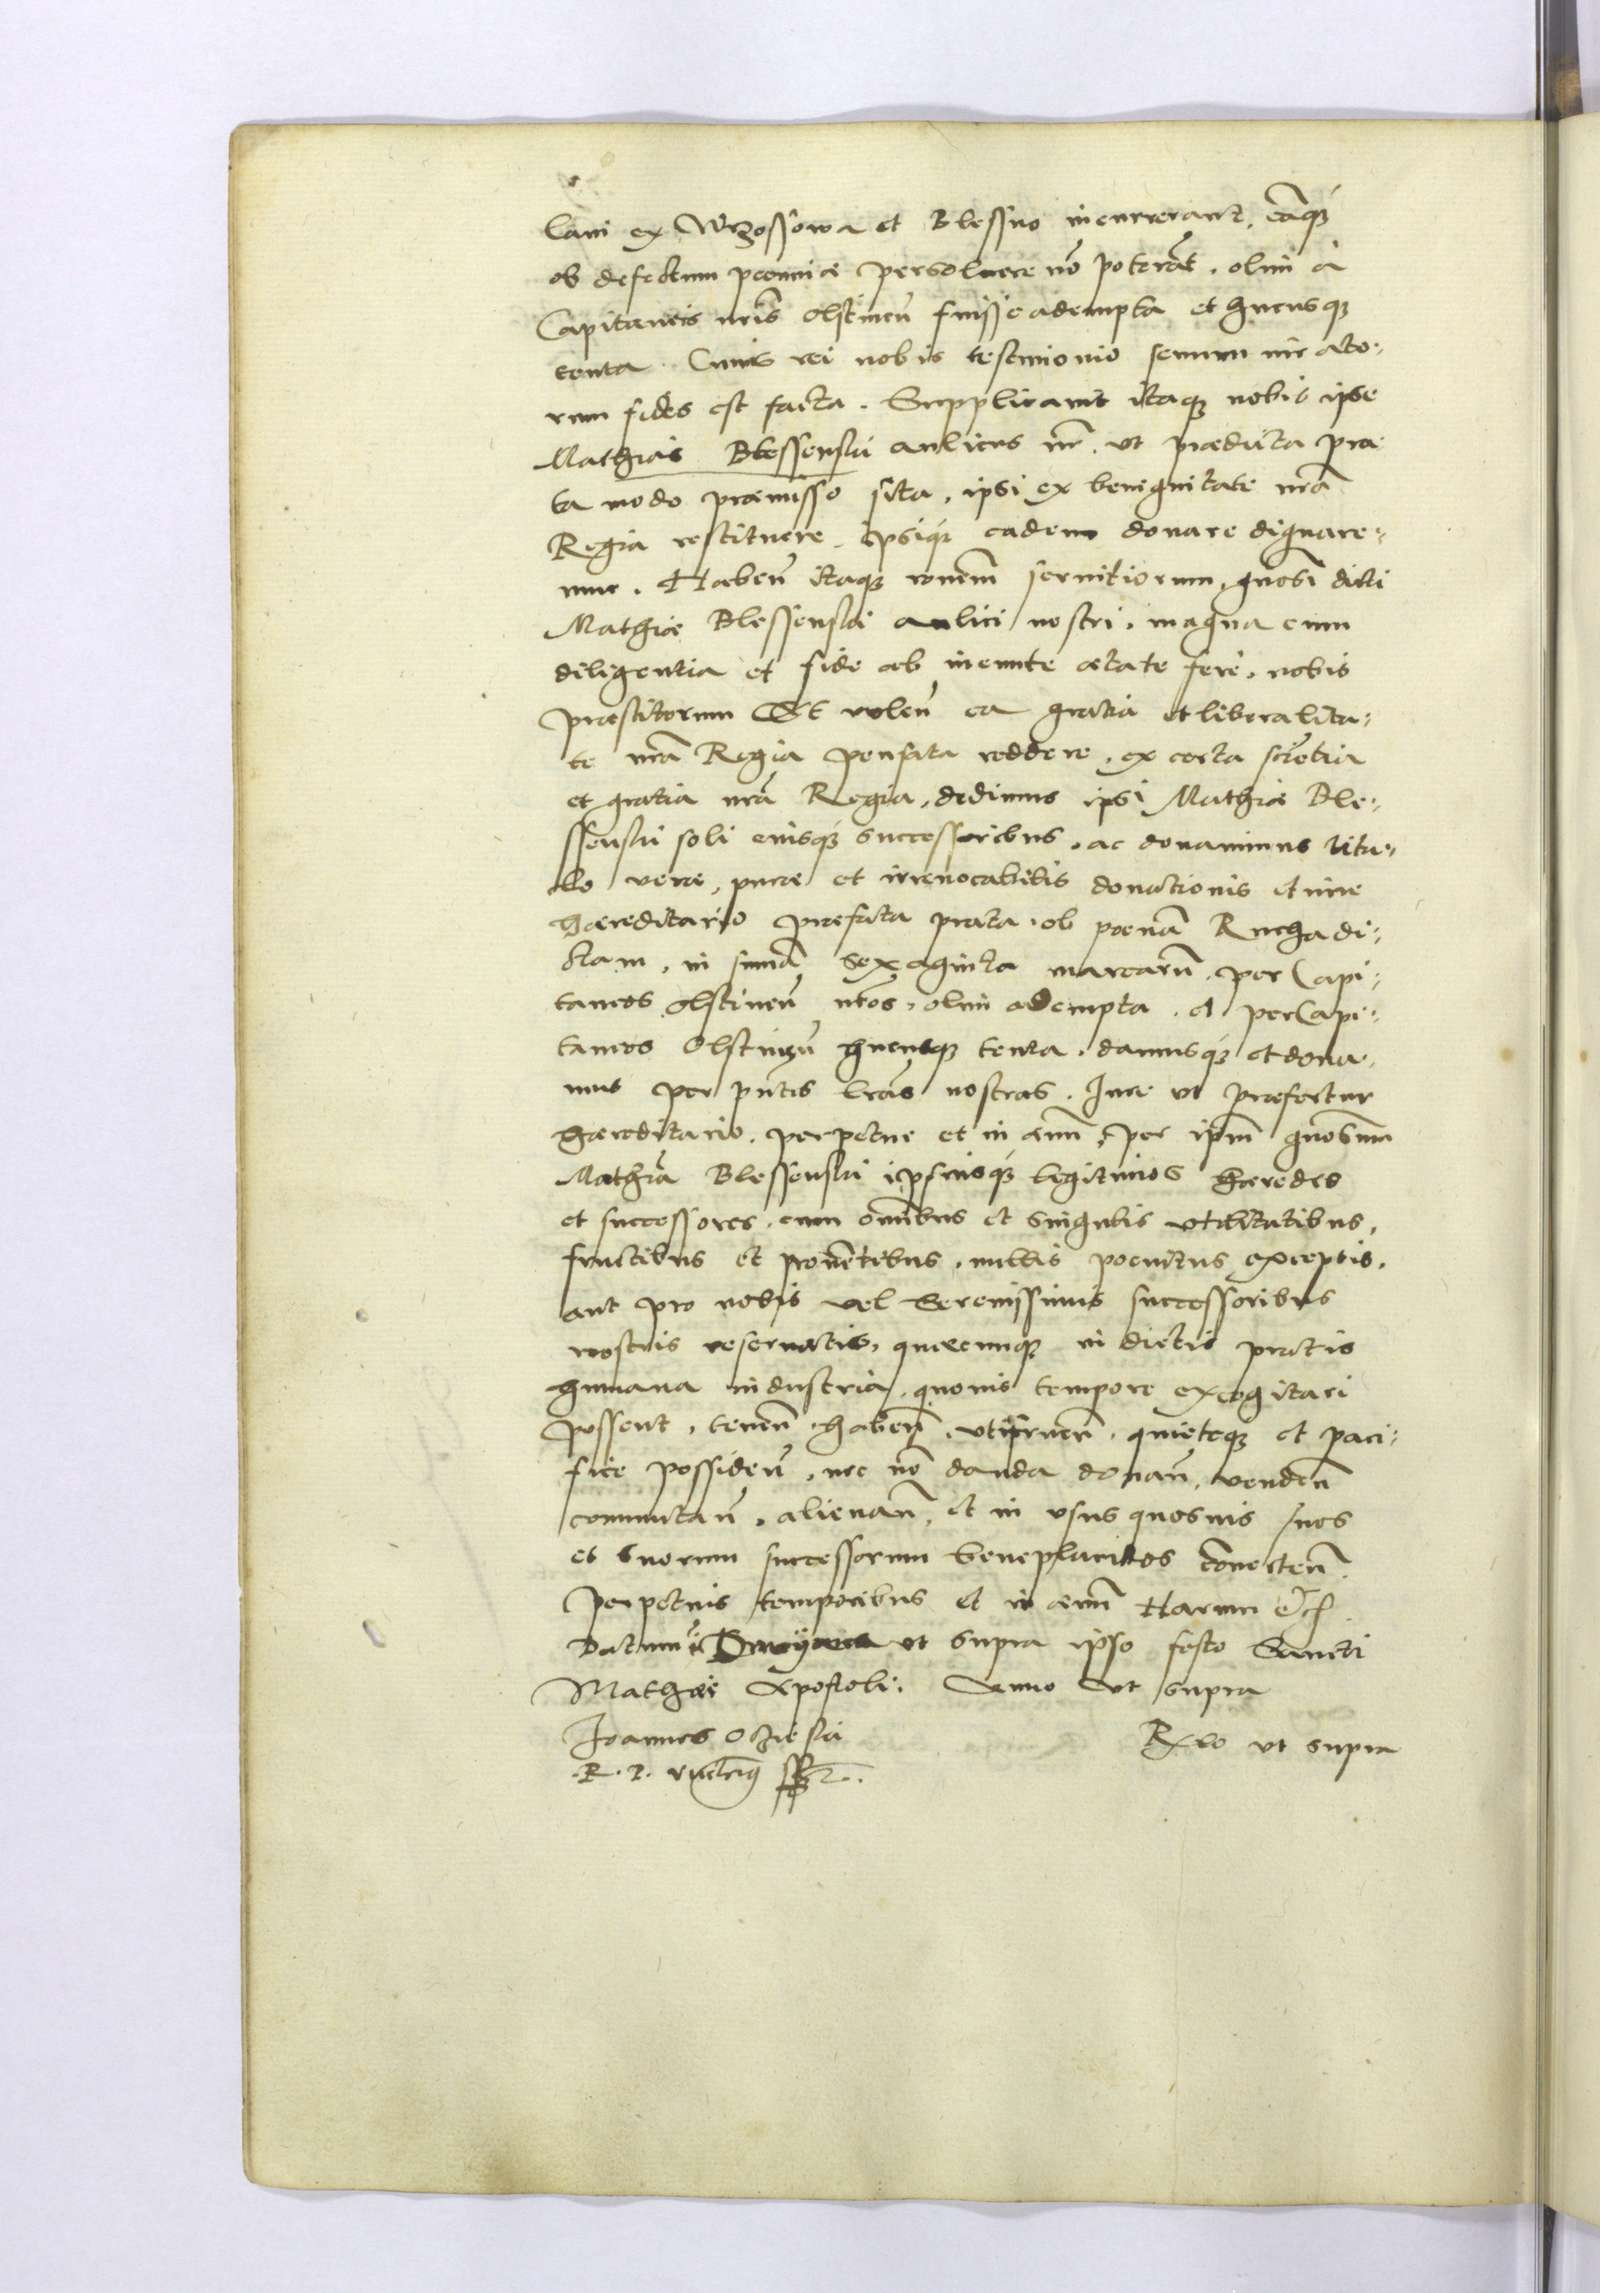 lani ex Wrzossowa et Blessno incurrerant, eāq́ꝫ
ob defectum pecuniæ persoluere nō poterāt, olim à
Capitaneis nrīs Olstineñ fuisse adempta et hucusqꝫ
tenta. Cuius rei nobis testimonio senum iur ato-
rum fides est facta. Supplicauit itaqꝫ nobis ipse
Mathias Blessenski aulicus nr̄. vt prædicta pra
ta modo præmisso sita, ipsi ex benignitate nrā
Regia restituere, ipsiq́ꝫ eadem donare dignare-
mur. Habeñ itaqꝫ ronem̄ seruitiorum, gnosī dicti
Mathiæ Blessenski aulici nostri, magna cum
diligentia et fide ab ineunte ætate ferè, nobis
præstitorum Et voleñ ea gratia et liberalita-
te nrā Regia pensata reddere, ex certa sciētia
et gratia nrā Regia, dedimus ipsi Mathiæ Ble-
ssenski soli eiusq́ꝫ successoribus, ac donauimus titu-
lo veræ, puræ et irreuocabilis donationis et iure
hæreditario præfata prata ob poenā Rucha di-
ctam, in sumā sexaginta marcarū per Capi-
taneos Olstineñ nrōs, olim adempta et per Capi-
taneos Olstineñ hucusqꝫ tenta, damusq́ꝫ et dona-
mus per pn̄tes lrās nostras. Iure vt præfertur
hæreditario, perpetue et in æuū, per ipm̄ gnosum
Mathiā Blessenski ipsiusq́ꝫ legitimos hæredes
et successores, cum omībus et singulis vtilitatibus,
fructibus et prouētibus, nullis poenitus exceptis,
aut pro nobis vel Serenissimis successoribus
nostris reseruatis, quæcunqꝫ in dictis pratis
humana industria, quouis tempore excogitari
possent, teneñ, habeñ, vtifrueñ, quieteqꝫ et paci-
fice possideñ, nec nō danda donañ, vendeñ
commutañ, alienañ, et in vsus quosuis suos
et suorum successorum beneplacitos cōuerteñ.
Perpetuis temporibus et in æuū Harum etc̄
Datum vt supra ipso festo Sancti
Mathæi Apostoli. Anno vt supra
Joannes Ocieski Rīo vt supra
.R. P. vicecancellariꝰ sst.